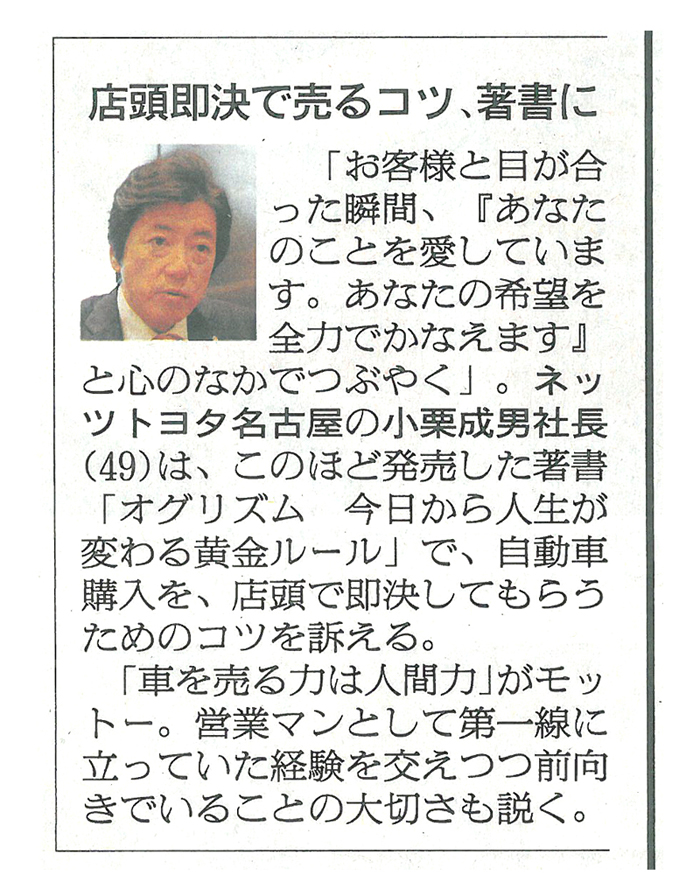 店頭即決で売るコツ、著書に
「お客様と目が合
った瞬間、『あなた
のことを愛していま
す。あなたの希望を
全力でかなえます』
と心のなかでつぶやく」。ネッ
ツトヨタ名古屋の小栗成男社長
(49)は、このほど発売した著書
「オグリズム　今日から人生が
変わる黄金ルール」で、自動車
購入を、店頭で即決してもらう
ためのコツを訴える。
「車を売る力は人間力」がモッ
トー。営業マンとして第一線に
立っていた経験を交えつつ前向
きでいることの大切さも説く。